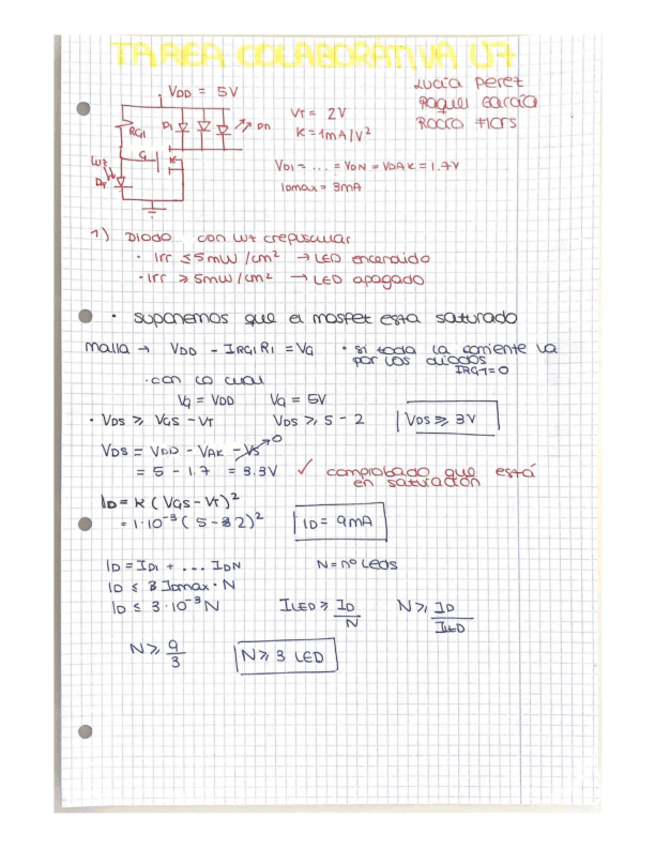 TAREA COLABORATIVA U7
Lucía Perez
Raquel García
VDD = 5V
VT = 2V
K = 1mA/V²
RG1
D1
DN
G
VD1 = ... = VDN = VDAK = 1.7V
IDmax = 3mA
1) DIODO con luz crepuscular
· Irr ≤ 5mW/cm² → LED encendido
· Irr ≥ 5mW/cm² → LED apagado
· suponemos que el mosfet esta saturado
malla → VDD - IRG1R1 = VG · si toda la corriente va
por los diodos
IRG1=0
· con lo cual
VG = VDD VG = 5V
· VDS ≥ VGS - VT VDS ≥ 5 - 2 VDS ≥ 3V
VDS = VDD - VAK - VS→0
= 5 - 1.7 = 3.3V ✓ comprobado que está
en saturación
ID = K (VGS - VT)²
= 1·10⁻³ (5 - 2)² ID = 9mA
ID = ID1 + ... IDN N = nº Leds
ID ≤ IDmax · N
ID ≤ 3·10⁻³ N ILED ≥ ID/N N ≥ ID/ILED
N ≥ 9/3 N ≥ 3 LED